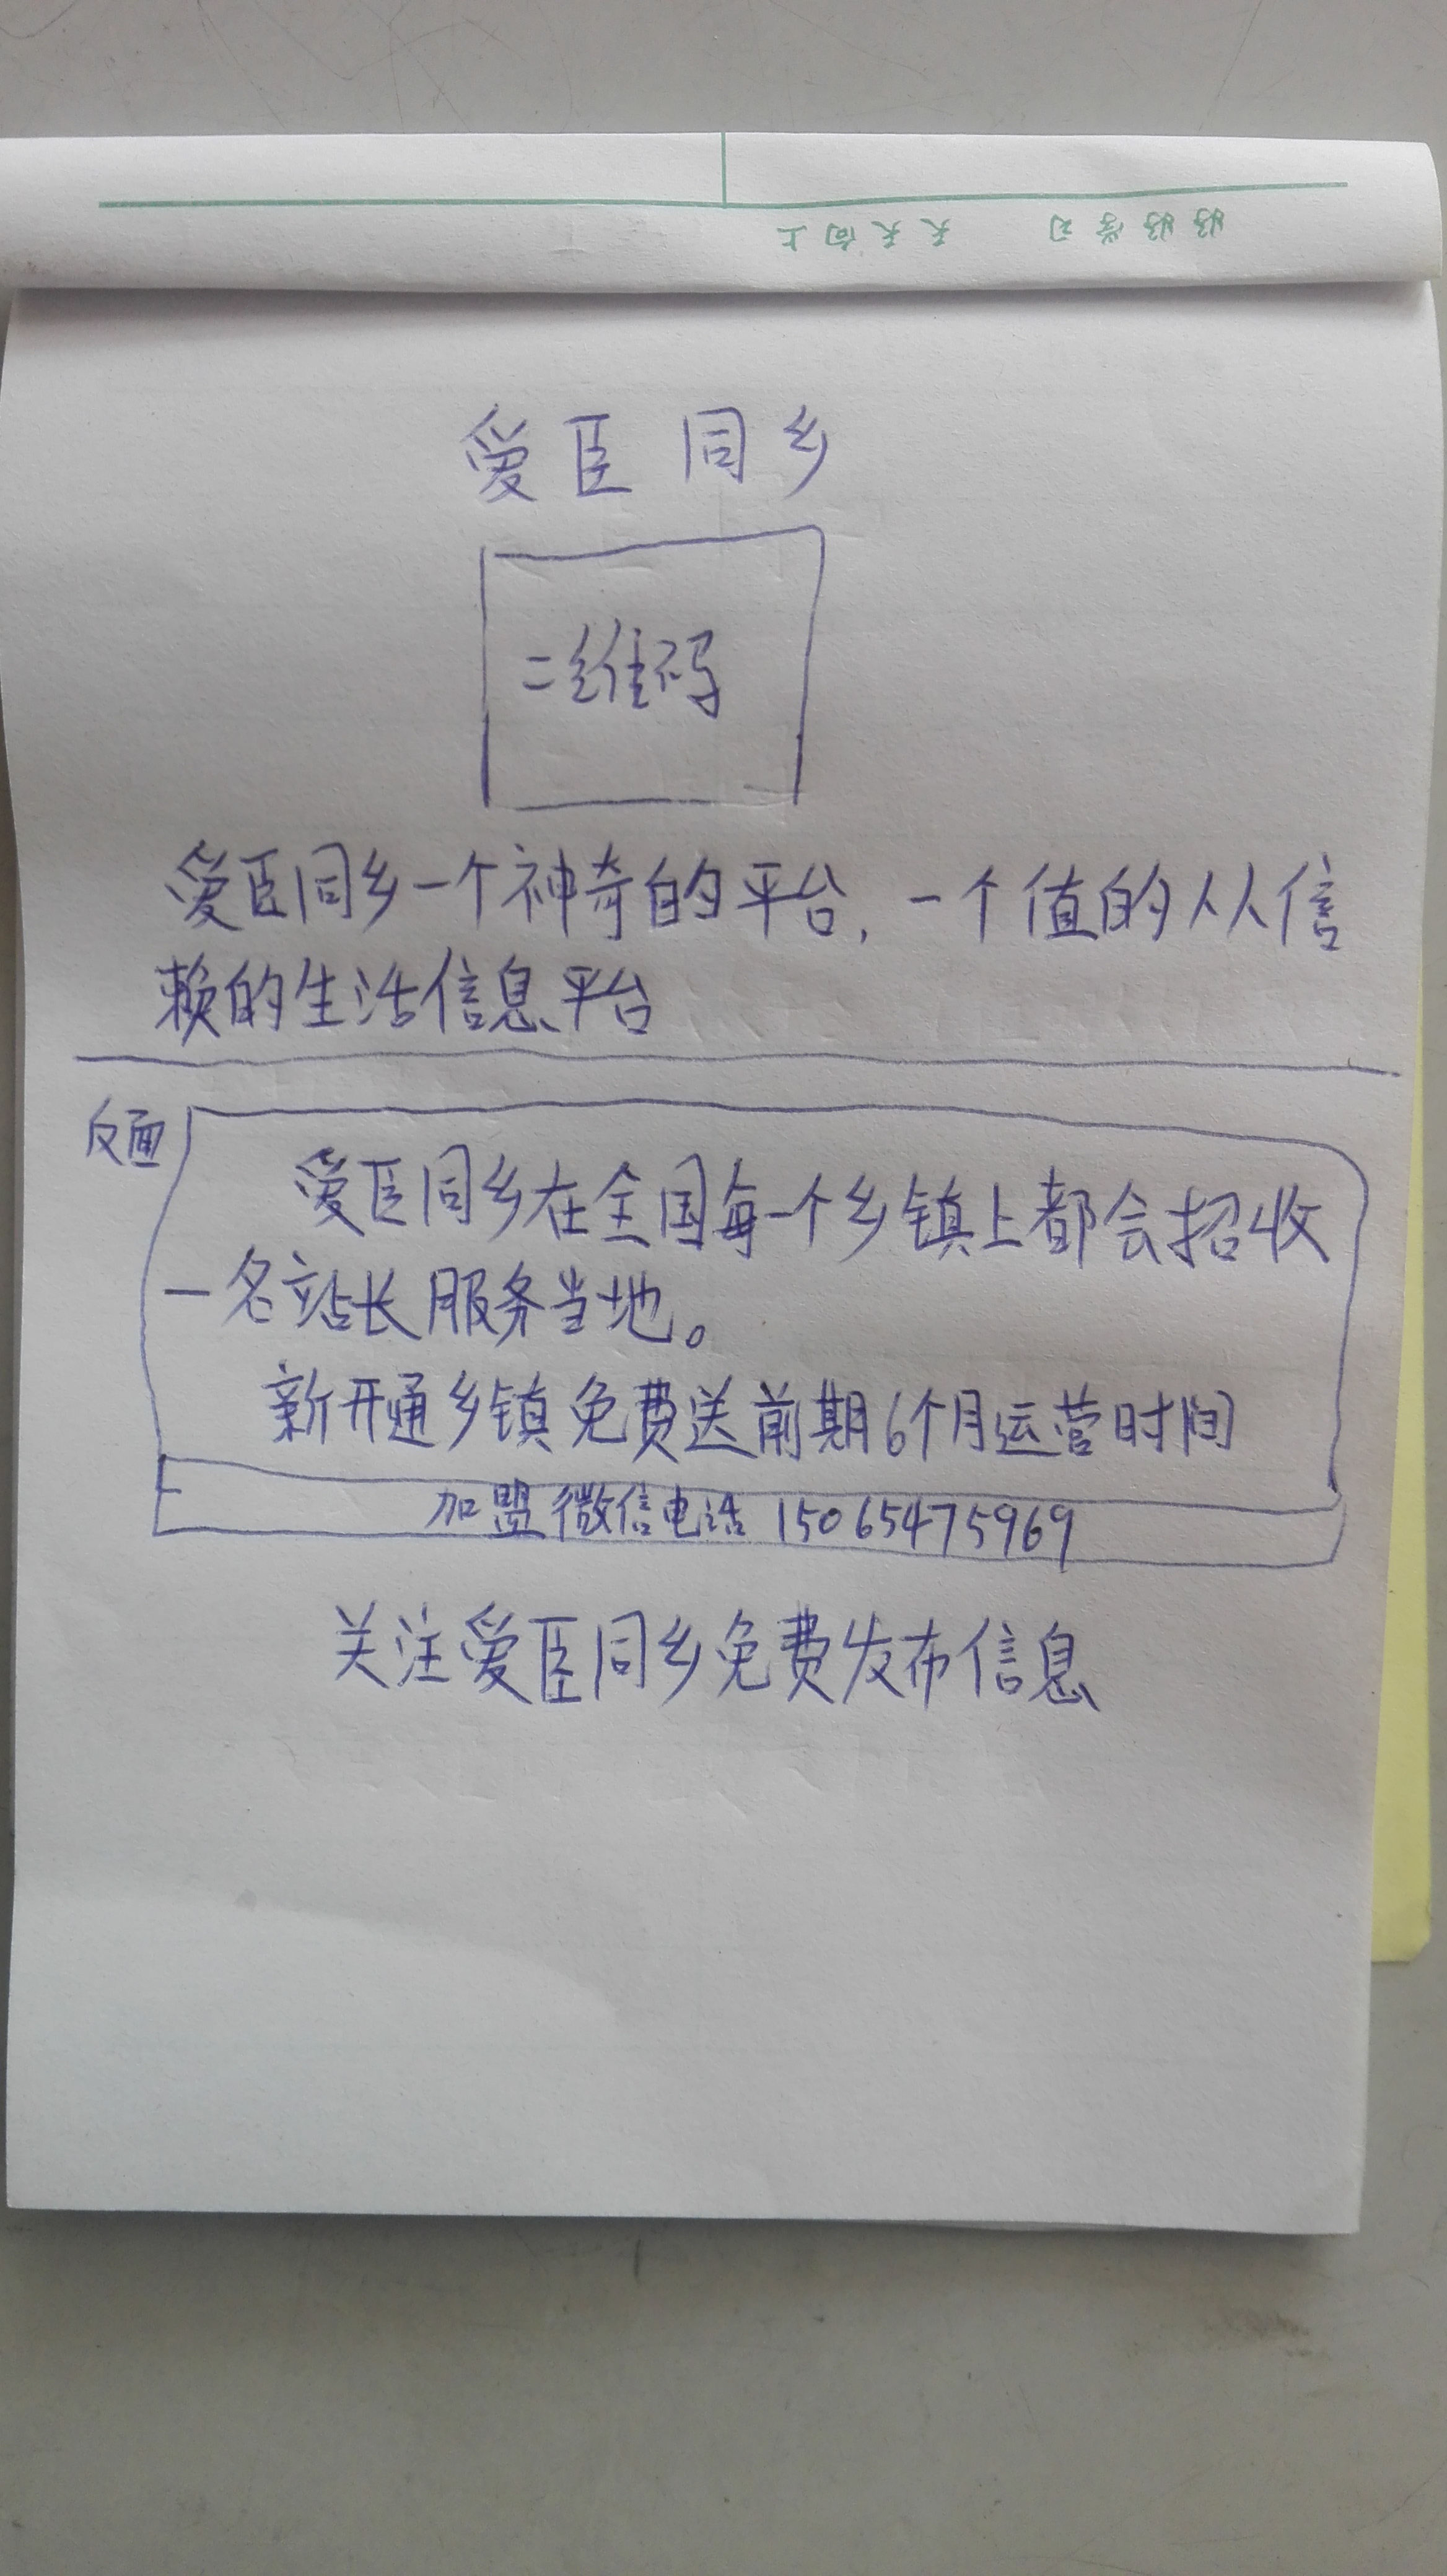 好好学习 天天向上
爱臣同乡
二维码
爱臣同乡一个神奇的平台，一个值的人人信
赖的生活信息平台
反面
爱臣同乡在全国每一个乡镇上都会招收
一名站长服务当地。
新开通乡镇免费送前期6个月运营时间
加盟微信电话 15065475969
关注爱臣同乡免费发布信息